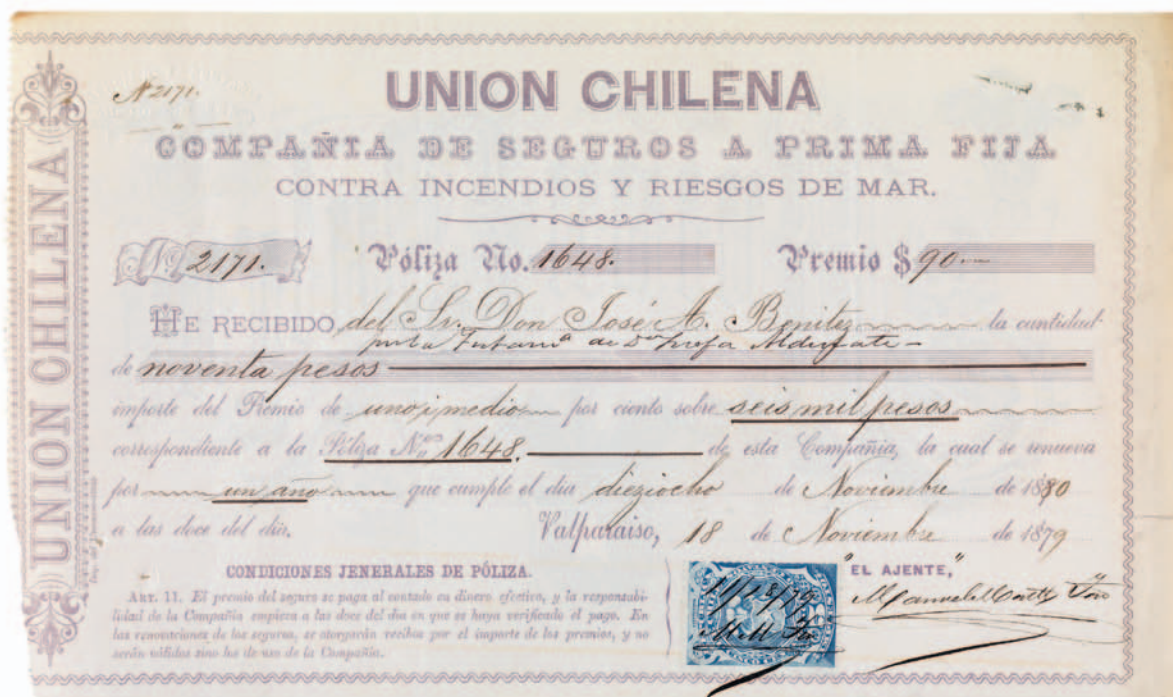 UNION CHILENA
Nº 2171.
UNION CHILENA
COMPAÑIA DE SEGUROS A PRIMA FIJA
CONTRA INCENDIOS Y RIESGOS DE MAR.
Nº 2171. Póliza No. 1648. Premio $ 90.
HE RECIBIDO del Sr. Don José A. Benitez la cantidad
de noventa pesos
importe del Premio de uno i medio por ciento sobre seis mil pesos
correspondiente a la Póliza Nº 1648. de esta Compañia, la cual se renueva
por un año que cumple el dia dieziocho de Noviembre de 1880
a las doce del dia. Valparaiso, 18 de Noviembre de 1879
CONDICIONES JENERALES DE PÓLIZA.
"EL AJENTE,"
ART. 11. El premio del seguro se paga al contado en dinero efectivo, y la responsabi-
lidad de la Compañia empieza a las doce del dia en que se haya verificado el pago. En
las renovaciones de los seguros, se otorgarán recibos por el importe de los premios, y no
serán válidos sino los de uso de la Compañia.
Manuel
11/18/79